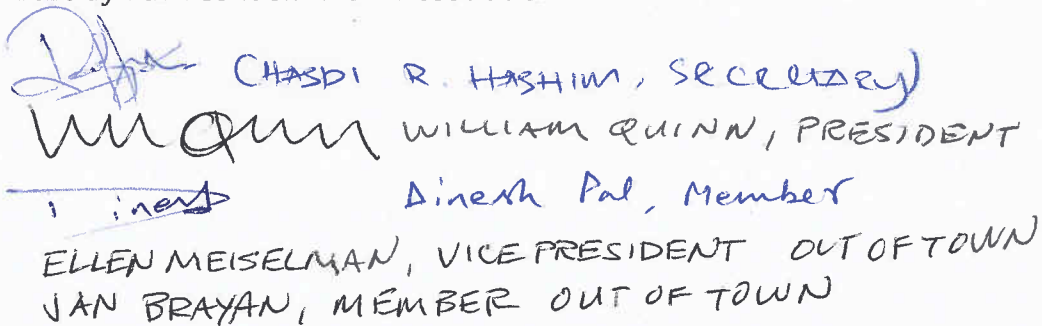 CHASDI R. HASHIM, SECRETARY
WILLIAM QUINN, PRESIDENT
Dinesh Pal, Member
ELLEN MEISELMAN, VICE PRESIDENT OUT OF TOWN
JAN BRAYAN, MEMBER OUT OF TOWN